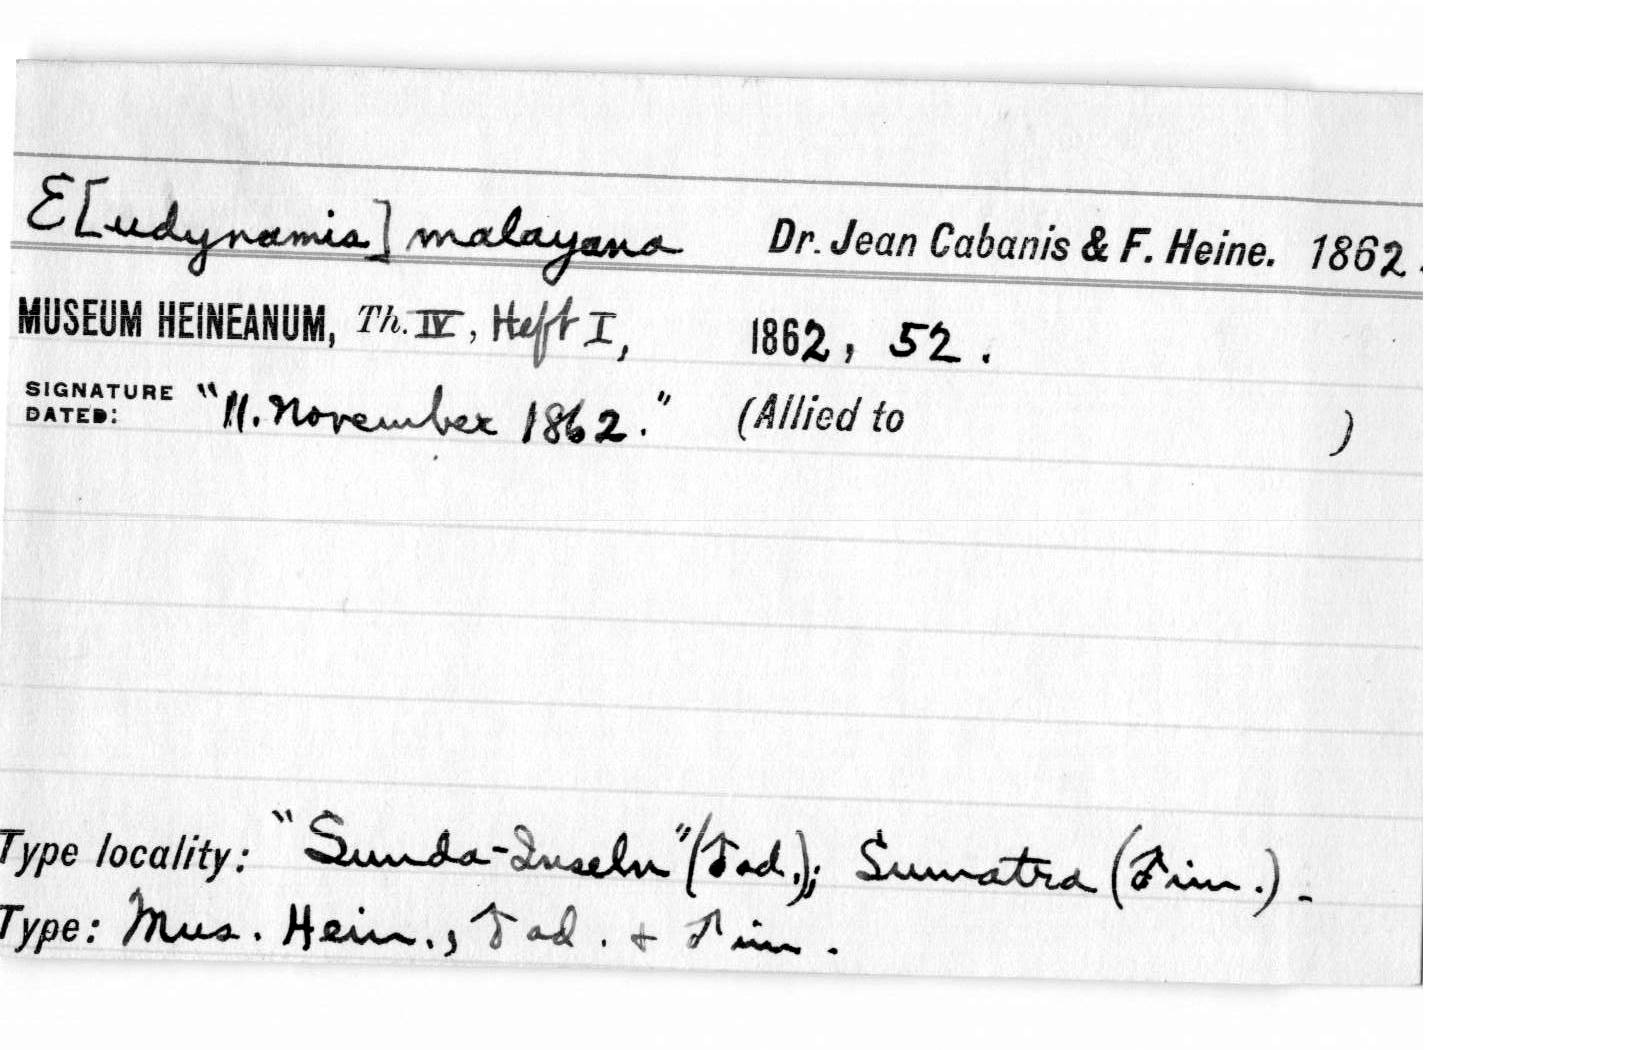 E[udynamis] malayana Dr. Jean Cabanis & F. Heine. 1862.
MUSEUM HEINEANUM, Th. IV, Heft I, 1862, 52.
SIGNATURE DATED: "11. November 1862." (Allied to )
Type locality: "Sunda-Inseln" (♂ad.); Sumatra (♂im.).
Type: Mus. Hein., ♂ad. + ♂im.